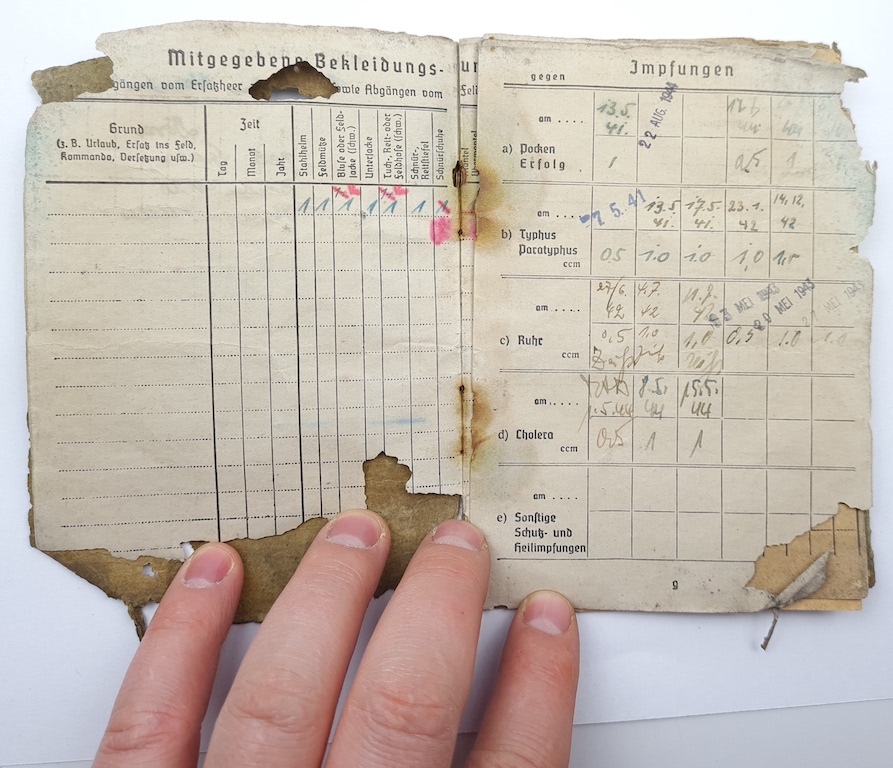 Mitgegebene Bekleidungs-
gängen vom Ersatzheer owie Abgängen vom
Grund
(z. B. Urlaub, Ersatz ins Feld,
Kommando, Versetzung usw.)
Zeit
Tag
Monat
Jahr
Stahlhelm
Feldmütze
Bluse oder Feld-
jacke (schw.)
Unterjacke
Tuch-, Reit- oder
Feldhose (schw.)
Schnür-,
Reitstiefel
Schnürschuhe
1 1 1 1 1 1
un
Fel
Impfungen
gegen
am . . . . 13.5. 22 AUG. 1941
41.
a) Pocken
Erfolg 1 1
am . . . . 7 5. 41 13.5. 17.5. 23.1. 14.12.
41. 41. 42 42
b) Typhus
Paratyphus
ccm 0.5 1.0 1.0 1,0
27/6. 4.7.
am . . . . 42 42 MEI 1943 20 MEI 1943 MEI 1943
c) Ruhr 0,5 1.0 1,0 0,5 1.0 1.0
ccm
am . . . . 8.5. 15.5.
44 44 44
d) Cholera 0.5 1 1
ccm
am . . . .
e) Sonstige
Schutz- und
Heilimpfungen
9